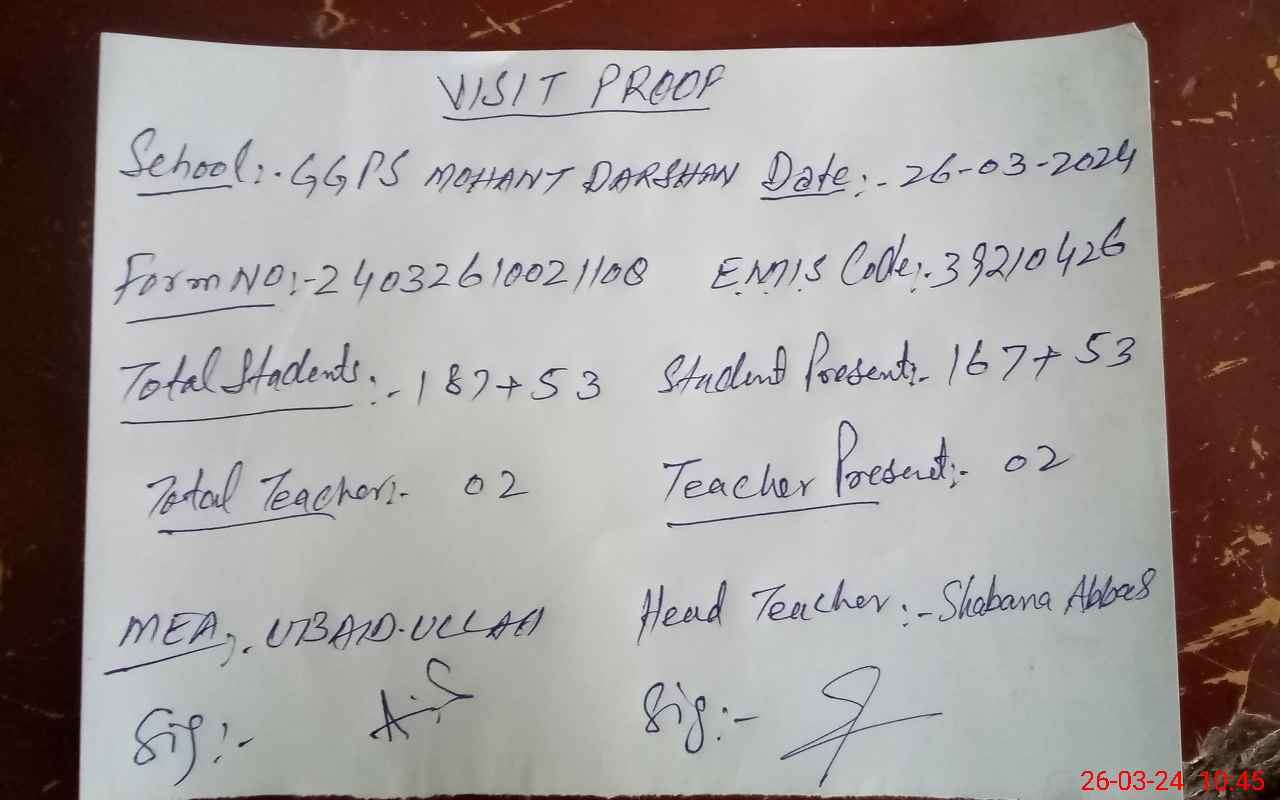 VISIT PROOF
School:- GGPS MOHANT DARSHAN Date:- 26-03-2024
Form NO:- 24032610021108 E.M.I.S Code:- 39210426
Total Students:- 187+53 Student Present:- 167+53
Total Teacher:- 02 Teacher Present:- 02
MEA:- UBAID-ULLAH Head Teacher:- Shabana Abbas
Sig:- Sig:-
26-03-24 10:45